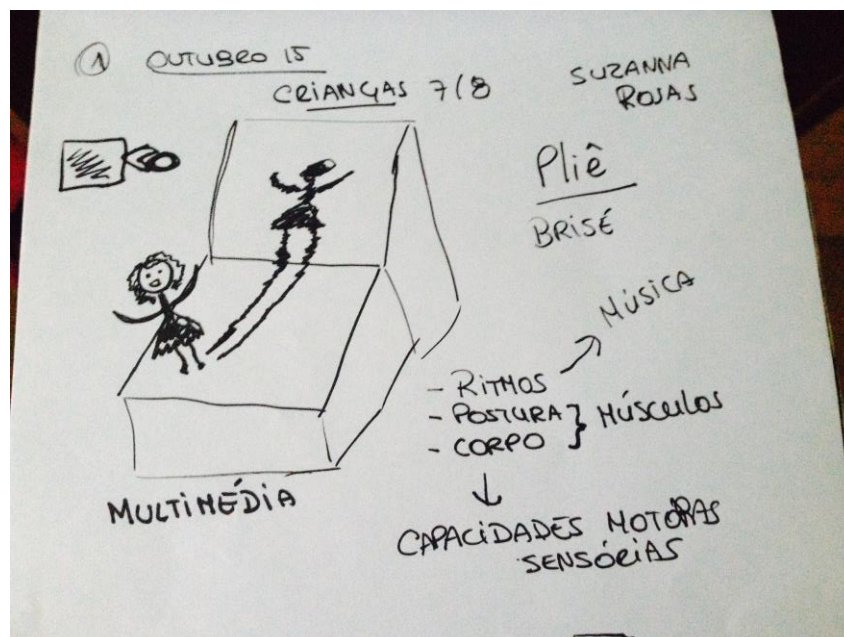 1 OUTUBRO 15
CRIANÇAS 7/8
SUZANNA
ROJAS
Pliê
BRISÉ
MÚSICA
- RITMOS
- POSTURA } MÚSCULOS
- CORPO
MULTIMÉDIA
CAPACIDADES MOTÓRAS
SENSÓRIAS